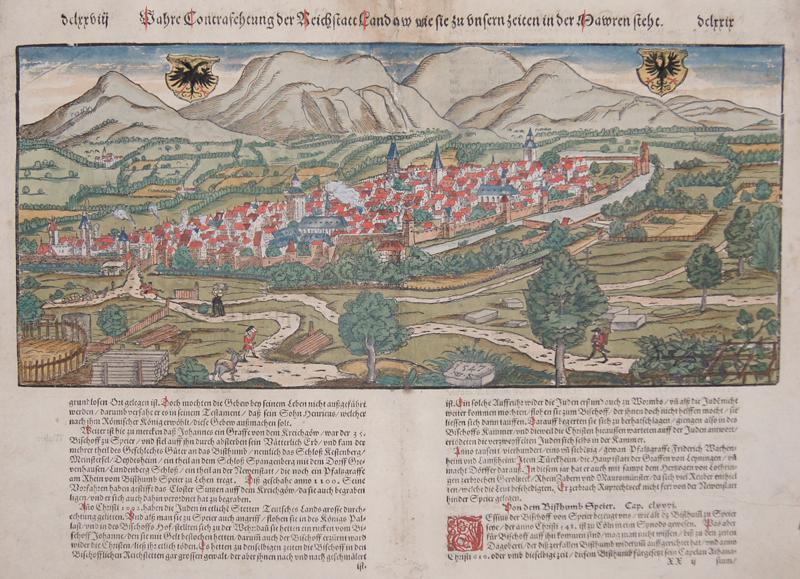 dclxxviij Wahre Contrafehtung der Reichstatt Landaw wie sie zu vnsern zeiten in der Mawren steht. dclxxix
grundlosen Ort gelegen ist. Doch mochten die Gebew bey seinem Leben nicht außgeführt
werden / darumb versahe er es in seinem Testament / daß sein Sohn Henricus / welcher
nach ihm Römischer König erwöhlt / diese Gebew außmachen solt.
Weiter ist hie zu mercken daß Johannes ein Graffe von dem Kreichgöw / war der 35.
Bischoff zu Speier / vnd fiel auff ihn durch absterben sein Vätterlich Erb / vnd kam der
mehrer theil des Geschlechts Güter an das Bisthumb / nemlich das Schloß Kestenberg /
Meinsersel / Deydesheim / ein theil an dem Schloß Spangenberg mit dem Dorff
venhausen / Lundenberg Schloß / ein theil an der Newenstatt / die noch ein Pfaltzgraffe
am Rhein vom Bisthumb Speier zu Lehen tregt. Diß geschahe anno 1100. Seine
Vorfahren haben gestifft das Closter Sunßen auff dem Kreichgöw / da sie auch begraben
ligen / vnd er sich auch dahin verordnet hat zu begraben.
Año Christi haben die Juden in etlich Stetten Teutsches Lands grosse durch-
echtung gelitten. Vnd als man sie zu Speier auch angriff / flohen sie in des Königs Pal-
last / vnd in des Bischoffs Hoff / stelleten sich zu der Wehr / daß sie hetten zu rieffen vom Bi-
schoff Johanne / den sie mit Gelt bestochen hetten / darumb auch der Bischoff erzürnt ward
wider die Christen / ließ ihr etlich tödten. Do hetten zu denselbigen zeiten die Bischoff in den
Bischofflichen Reichstetten gar grossen gewalt / der aber ihnen nach vnd nach geschmälert
ist.
ist. Ein solche Auffruhr wider die Juden erstund auch zu Wormbs / vñ als die Judē nicht
weiter kommen mochten / flohen sie zum Bischoff / der ihnen doch nicht helffen mocht / sie
liessen sich dann tauffen. Darauff begerten sie sich zu berhatschlagen / giengen also in des
Bischoffs Kammer / vnd dieweil die Christen hieraussen warteten auff der Juden antwort /
ertödteten die verzweyffelten Juden sich selbs in der Kammer.
Anno tausent / vierhundert / eins vñ siebentzig / gewan Pfaltzgraffe Friderich Wachen-
heim vnd Lambsheim: Item Türckheim die Hauptstat der Graffen von Leyningen / vñ
macht Dörffer darauß. In diesem jar hat er auch mit sampt dem Hertzogen von Lothrin-
gen zerbrochen Gerolseck / Rhein Zabern vnd Maursmünster / da sich viel Reuter enthiel-
ten / welche die Leut beschedigten. Ertzerback Ruprechtseck nicht fer: von der Newenstatt
hinder Speier gelegen.
Von dem Bisthumb Speier. Cap. clxxvj.
Essius der Bischoff von Speier bezeugt vns / wie alt dz Bisthumb zu Speier
seye / der anno Christi 348. ist zu Cöln in eim Synodo gewesen. Was aber
für Bischoff auff ihn kommen sind / mag man nicht wissen / biß zu den zeiten
Dagoberti / der diß zerfallen Bisthumb widerumb auffgerichtet hat / vnd anno
Christi 610. oder vmb dieselbige zeit / diesem Bisthumb fürgesetzt sein Capelan Athana-
XX ij sium /